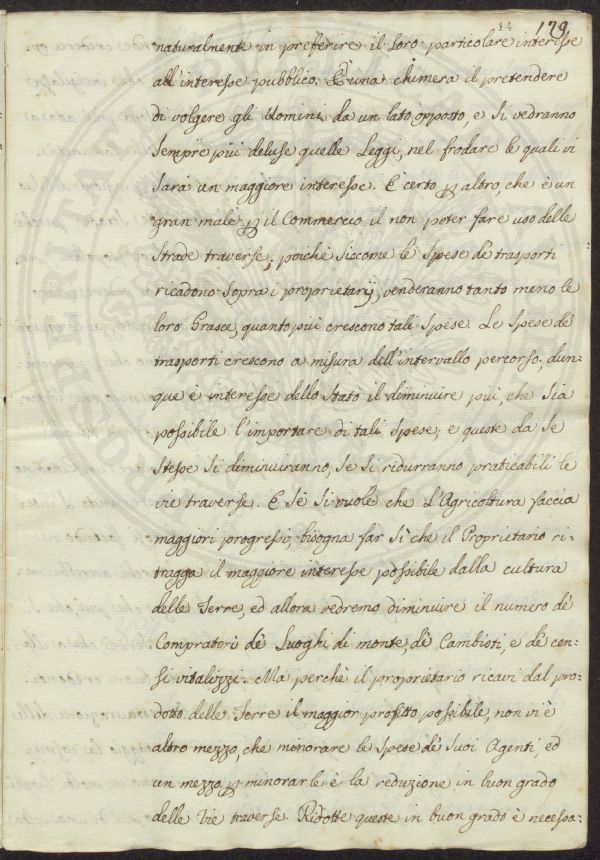 14 179
naturalmente in prefferire il loro particolare interesse
all'interesse pubblico. È una chimera il pretendere
di volgere gli Uomini da un lato opposto, e si vedranno
sempre più deluse quelle Leggi, nel frodare le quali vi
sarà un maggiore interesse. È certo ꝑ altro, che è un
gran male ꝑ il Commercio il non poter fare uso delle
Strade traverse; poichè siccome le Spese de trasporti
ricadono sopra i proprietarij, venderanno tanto meno le
loro Grasce, quanto più crescono tali spese. Le Spese de
trasporti crescono a misura dell'intervallo percorso; dun=
que è interesse dello Stato il diminuire più, che sia
possibile l'importare di tali Spese; e queste da se
stesse si diminuiranno, se si ridurranno praticabili le
vie traverse. E se si vuole che l'Agricoltura faccia
maggiori progressi, bisogna far sì che il Proprietario ri=
tragga il maggiore interesse possibile dalla cultura
delle Terre, ed allora vedremo diminuire il numero de
Compratori de Luoghi di monte, de Cambisti, e de cen=
si vitalizzi. Ma perchè il proprietario ricavi dal pro=
dotto delle Terre il maggior profitto possibile, non vi è
altro mezzo, che minorare le spese de suoi Agenti, ed
un mezzo ꝑ minorarle è la reduzione in buon grado
delle Vie traverse. Ridotte queste in buon grado è necessa=